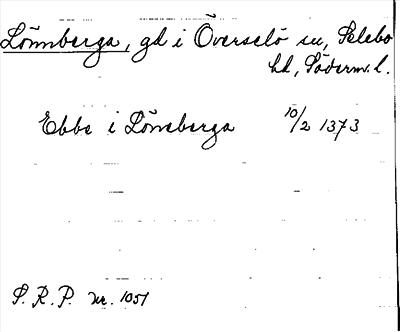 Lönnberga, gd i Överselö sn, Selebo
hd, Söderm. l.
Ebbe i Löneberga 10/2 1373
S. R. P. nr. 1051